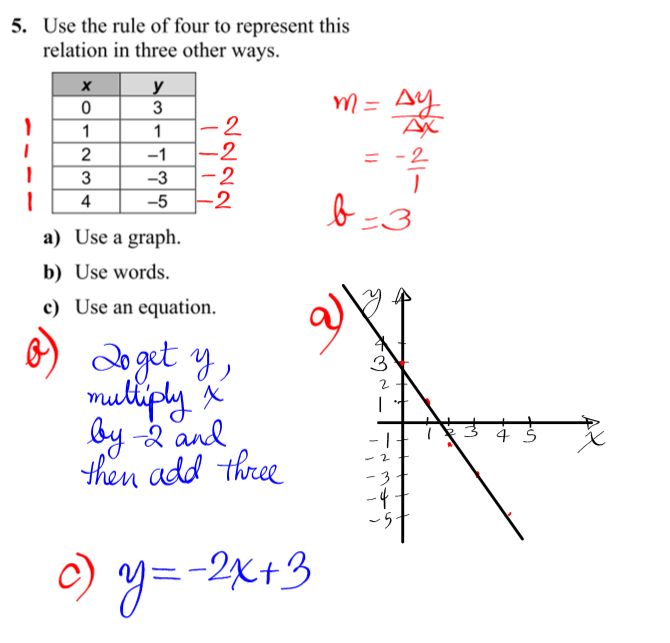 5. Use the rule of four to represent this
relation in three other ways.
x y
0 3
1 1 1 -2
1 2 –1 -2
1 3 –3 -2
1 4 –5 -2
m = Δy
Δx
= -2
1
b = 3
a) Use a graph.
b) Use words.
c) Use an equation.
a)
y
4
3
2
1
1 2 3 4 5 x
-1
-2
-3
-4
-5
b) To get y,
multiply x
by -2 and
then add three
c) y = -2x+3